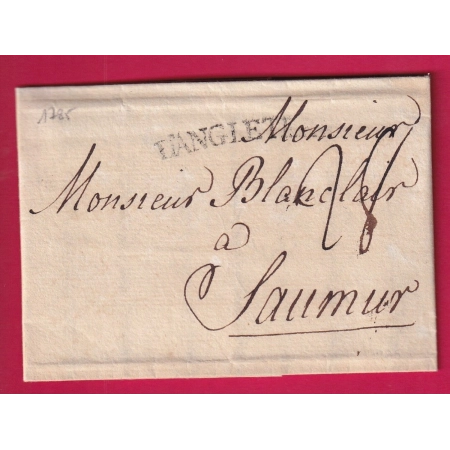 1785
D'ANGLETE
Monsieur
Monsieur Blanclair
28
à
Saumur